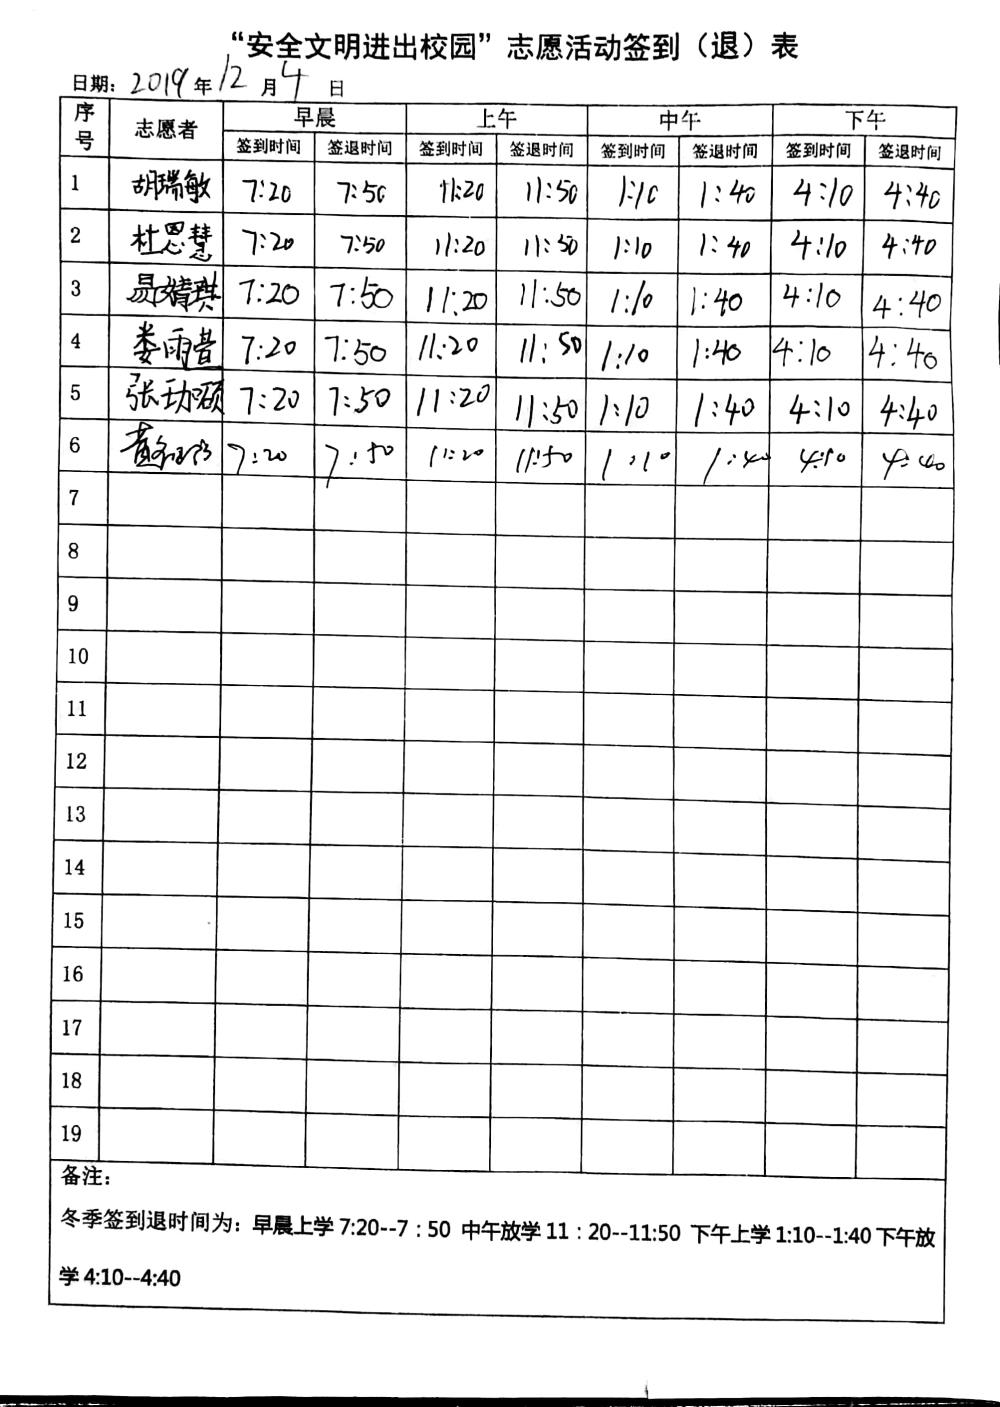 “安全文明进出校园”志愿活动签到（退）表
日期：2019年12月4日
序号 志愿者 早晨 上午 中午 下午
签到时间 签退时间 签到时间 签退时间 签到时间 签退时间 签到时间 签退时间
1 胡瑞敏 7:20 7:50 11:20 11:50 1:10 1:40 4:10 4:40
2 杜恩慧 7:20 7:50 11:20 11:50 1:10 1:40 4:10 4:40
3 7:20 7:50 11:20 11:50 1:10 1:40 4:10 4:40
4 娄雨昔 7:20 7:50 11:20 11:50 1:10 1:40 4:10 4:40
5 7:20 7:50 11:20 11:50 1:10 1:40 4:10 4:40
6 7:20 7:50 11:20 11:50 1:10 1:40 4:10 4:40
7
8
9
10
11
12
13
14
15
16
17
18
19
备注：
冬季签到退时间为：早晨上学 7:20--7：50 中午放学 11：20--11:50 下午上学 1:10--1:40 下午放
学 4:10--4:40